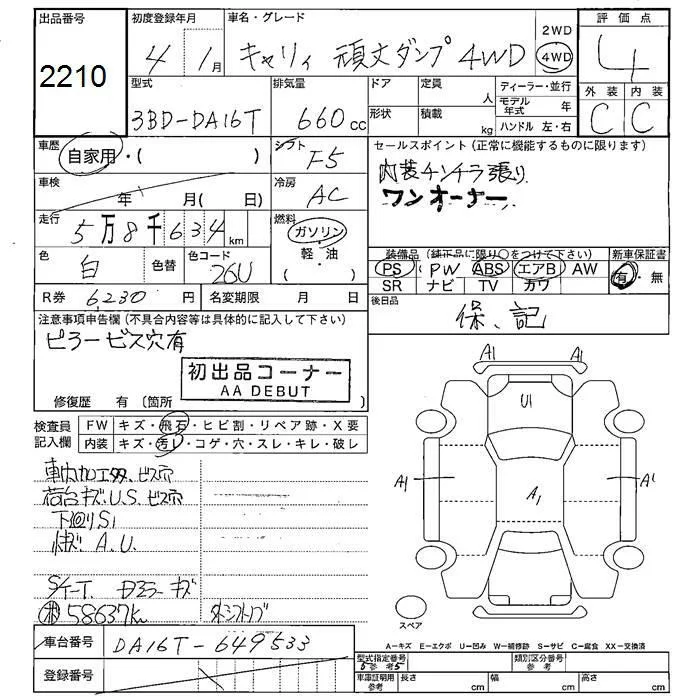 出品番号 初度登録年月 車名・グレード 2WD 評価点
2210 4年 1月 キャリィ 頑丈ダンプ 4WD 4WD 4
型式 排気量 ドア 定員 人 ディーラー・並行 外装 内装
3BD-DA16T 660cc 形状 積載 kg モデル年式 年 C C
ハンドル 左・右
車歴 自家用・( ) シフト F5 セールスポイント(正常に機能するものに限ります)
車検 年 月( 日) 冷房 AC 内装チンチラ張り
ワンオーナー
走行 5万8千634km 燃料 ガソリン・軽油 ( )
色 白 色替 色コード 26U 装備品(純正品に限り○をつけて下さい) 新車保証書
PS PW ABS エアB AW 有・無
SR ナビ TV カワ
R券 6,230円 名変期限 月 日 後日品
保、記
注意事項申告欄(不具合内容等は具体的に記入して下さい)
ピラービス穴有
初出品コーナー
AA DEBUT
修復歴 有(箇所
検査員記入欄 FW キズ・飛石・ヒビ割・リペア跡・X要
内装 キズ・汚レ・コゲ・穴・スレ・キレ・破レ
A1 A1
U1
A1 A1 A1
ビス穴
荷台キズ.U.S.ビス穴
下回りS1
A.U.
キズ
58637km 外シフトノブ
スペア
A-キズ E-エクボ U-凹み W-補修跡 S-サビ C-腐食 XX-交換済
車台番号 DA16T-649533
型式指定番号 類別区分番号
参考 5 参考
登録番号
車庫証明用参考 長さ cm 幅 cm 高さ cm